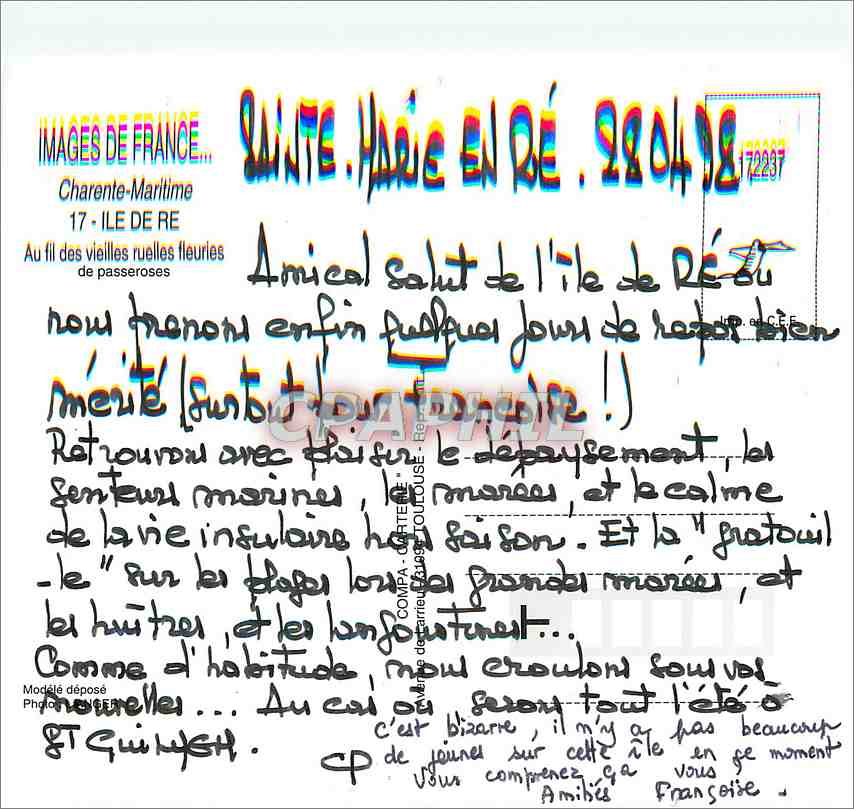 SAINTE. MARIE EN RÉ. 28 04 98
IMAGES DE FRANCE...
172237
Charente-Maritime
17 - ILE DE RE
Au fil des vieilles ruelles fleuries
de passeroses
Amical salut de l'île de RÉ où
nous prenons enfin quelques jours de repos bien
Imp. en C.E.E.
mérité (surtout pour Françoise !)
CPAPHIL
Retrouvons avec plaisir le dépaysement, les
senteurs marines, les marées, et le calme
de la vie insulaire hors saison. Et la "gratouil
-le" sur les plages lors des grandes marées, et
les huîtres, et les langoustines!...
COMPA - CARTERIE"
31094 TOULOUSE - Rep.
Comme d'habitude, nous croulons sous vos
nouvelles... Au cas où, serons tout l'été à
Modèle déposé
Photo:
ST GUILHEM.
CP
c'est bizarre, il n'y a pas beaucoup
de jeunes sur cette île en ce moment
vous comprenez ça vous ?
Amitiés Françoise.